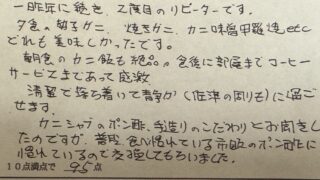 一昨年に続き 2度目のリピーターです。
夕食の茹子ガニ、焼きガニ、カニ味噌甲羅焼etc
どれも美味しかったです。
朝食のカニ飯も絶品。食後に部屋までコーヒー
サービスまであって感激
清潔で落ち着いて静かに(位津の周りも)に過ご
せます。
カニシャブのポン酢、手造りのこだわりとお聞きし
たのですが、普段、食べ慣れている市販のポン酢に
慣れているので交換してもらいました。
10点満点で 95点